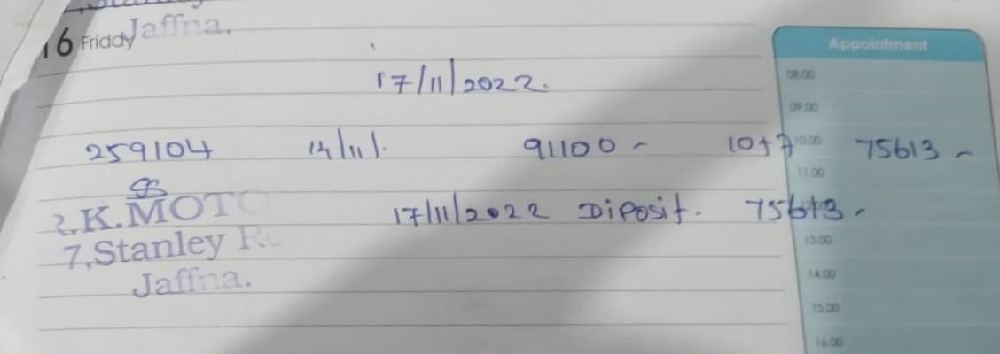 Jaffna.
16 Friday
Appointment
17/11/2022.
08.00
09.00
259104 14/11/. 91100 - 10+7 75613 -
10.00
11.00
K.MOTO
17/11/2022 Diposit. 75613 -
7,Stanley
13.00
Jaffna.
14.00
15.00
16.00